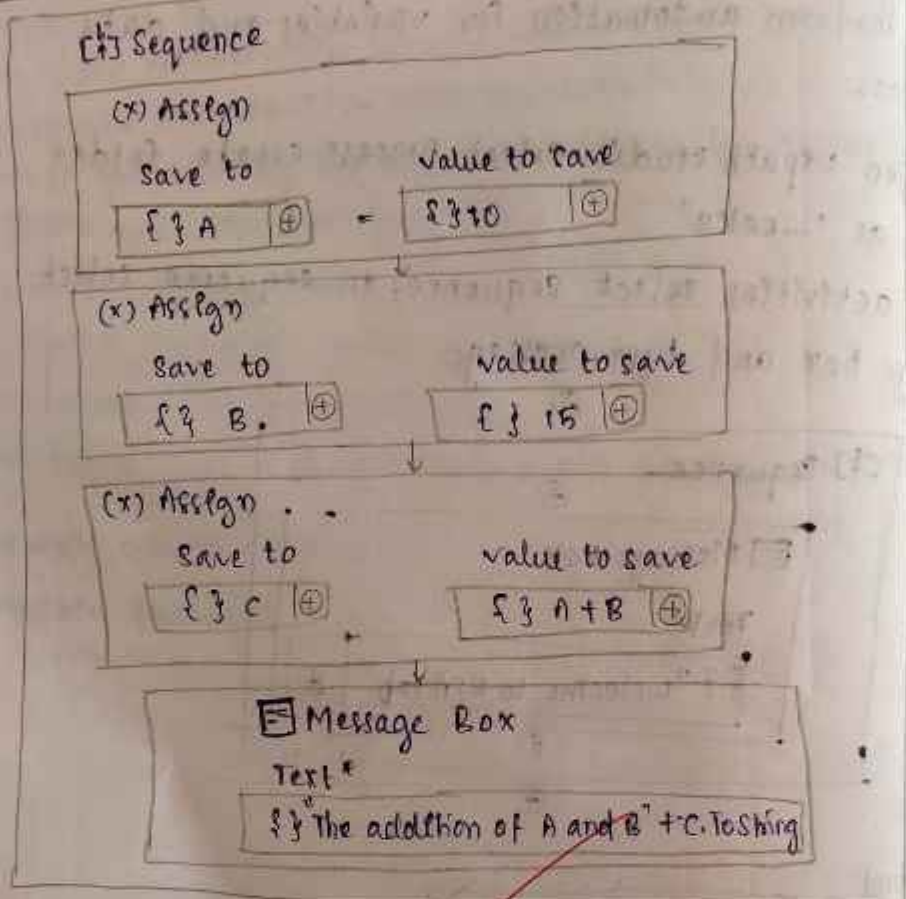 Sequence
(x) Assign
save to value to save
{ } A = { } 10
(x) Assign
save to value to save
{ } B. { } 15
(x) Assign . .
save to value to save
{ } C { } A + B
Message Box
Text *
{ } "The addition of A and B" + C.ToString